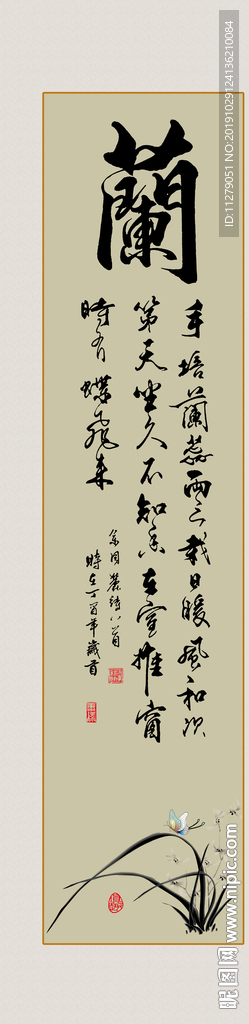 蘭
手培蘭蕊兩三栽日暖風和次
第天坐久不知香在室推窗
時有蝶飛來
余同麓詩八首
時在丁酉年歲首
ID:11279051 NO:20191029124136210084
昵图网 www.nipic.com